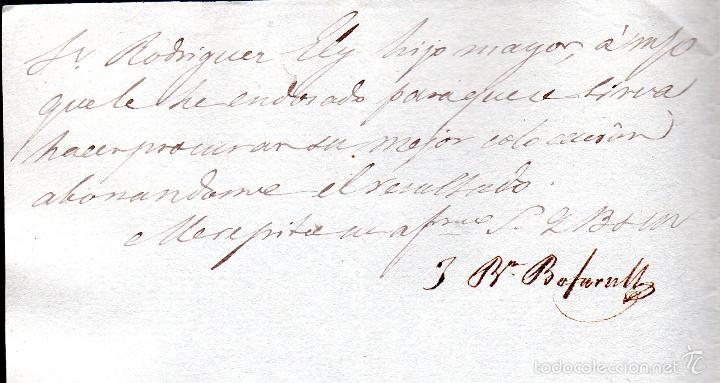 Sr. Rodriguez Ely hijo mayor, á
que le he endosado para que se sirva
hacer procurar su mejor colocación
abonandome el resultado.
Me repito su afmo S. Q B S M
J Bn. Bofarull
todocoleccion.net